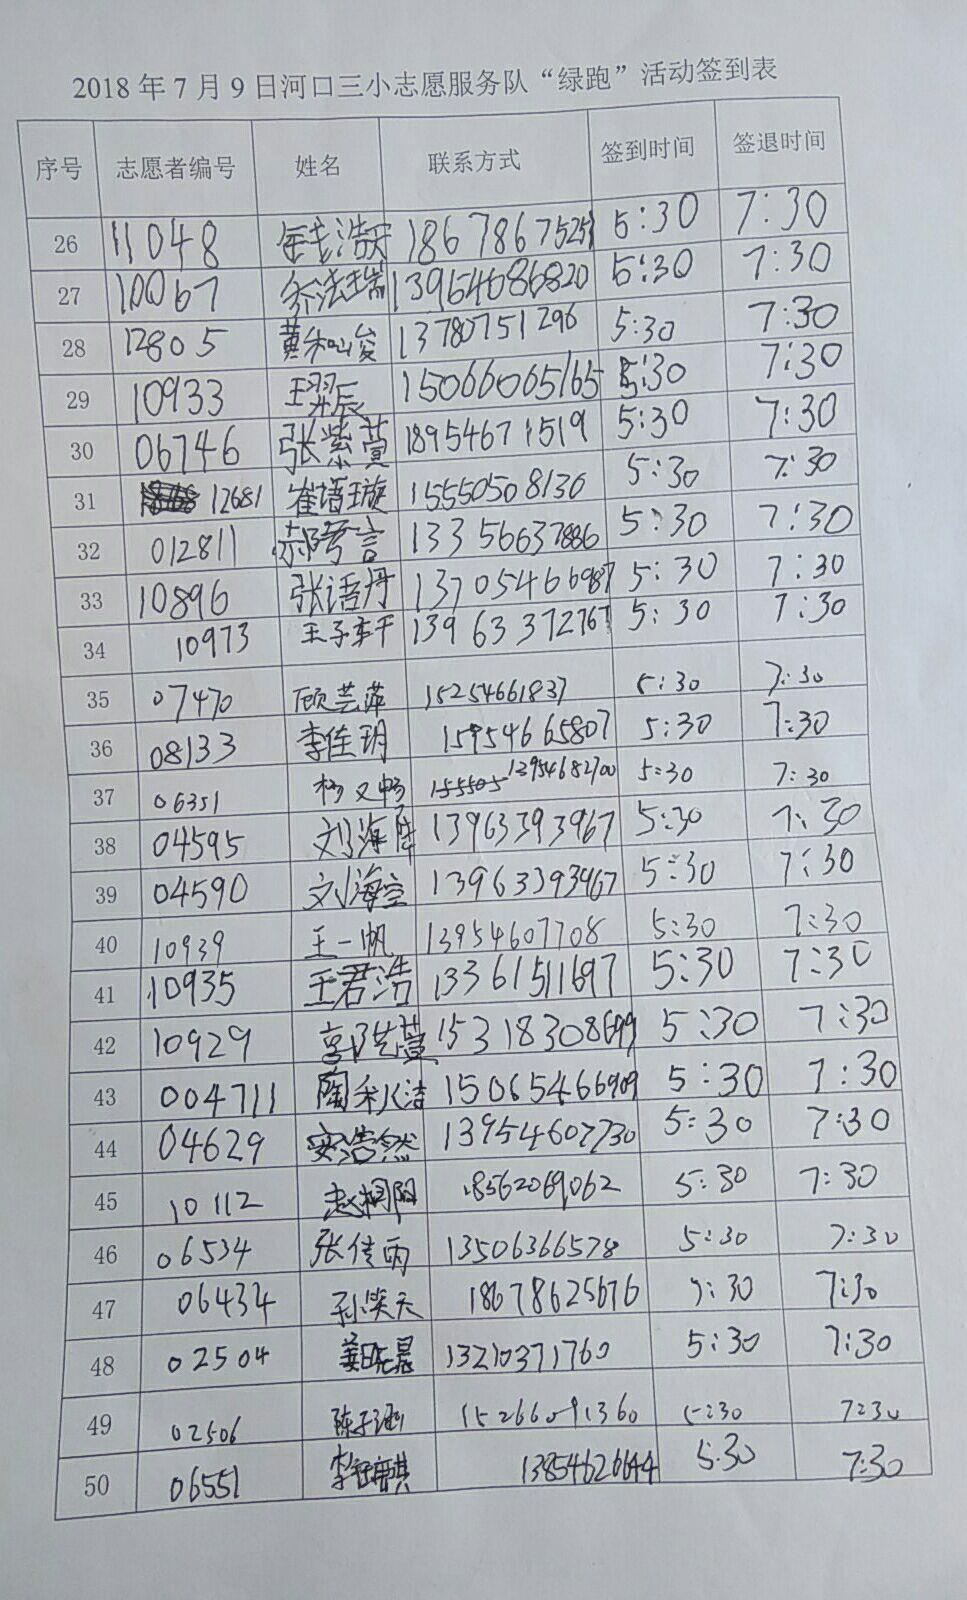 2018 年 7 月 9 日河口三小志愿服务队“绿跑”活动签到表
序号 志愿者编号 姓名 联系方式 签到时间 签退时间
26 11048 钱浩天 18678675251 5:30 7:30
27 10067 乔法瑞 13954686820 5:30 7:30
28 12805 黄和峻 13780751296 5:30 7:30
29 10933 王羿辰 15066065165 5:30 7:30
30 06746 张紫萱 18954671519 5:30 7:30
31 12681 崔语璇 15550508136 5:30 7:30
32 012811 言 13356637886 5:30 7:30
33 10896 张语丹 13705466987 5:30 7:30
34 10973 王子 13963372767 5:30 7:30
35 07470 顾芸萍 15254661837 5:30 7:30
36 08133 李佳玥 15954665807 5:30 7:30
37 06351 杨又畅 13954682700 5:30 7:30
38 04595 刘海陆 13963393967 5:30 7:30
39 04590 刘海空 13963393967 5:30 7:30
40 10939 王一帆 13954607708 5:30 7:30
41 10935 王君浩 13361511697 5:30 7:30
42 10929 郭艺萱 15318308699 5:30 7:30
43 004711 陶秋洁 15065466909 5:30 7:30
44 04629 安浩然 13954607730 5:30 7:30
45 10112 赵桐阳 18562069062 5:30 7:30
46 06534 张倩雨 13506366578 5:30 7:30
47 06434 孙笑天 18678625676 5:30 7:30
48 02504 姜晓晨 13210371760 5:30 7:30
49 02506 陈子涵 15266091360 5:30 7:30
50 06551 李钰麒 13854620644 5:30 7:30